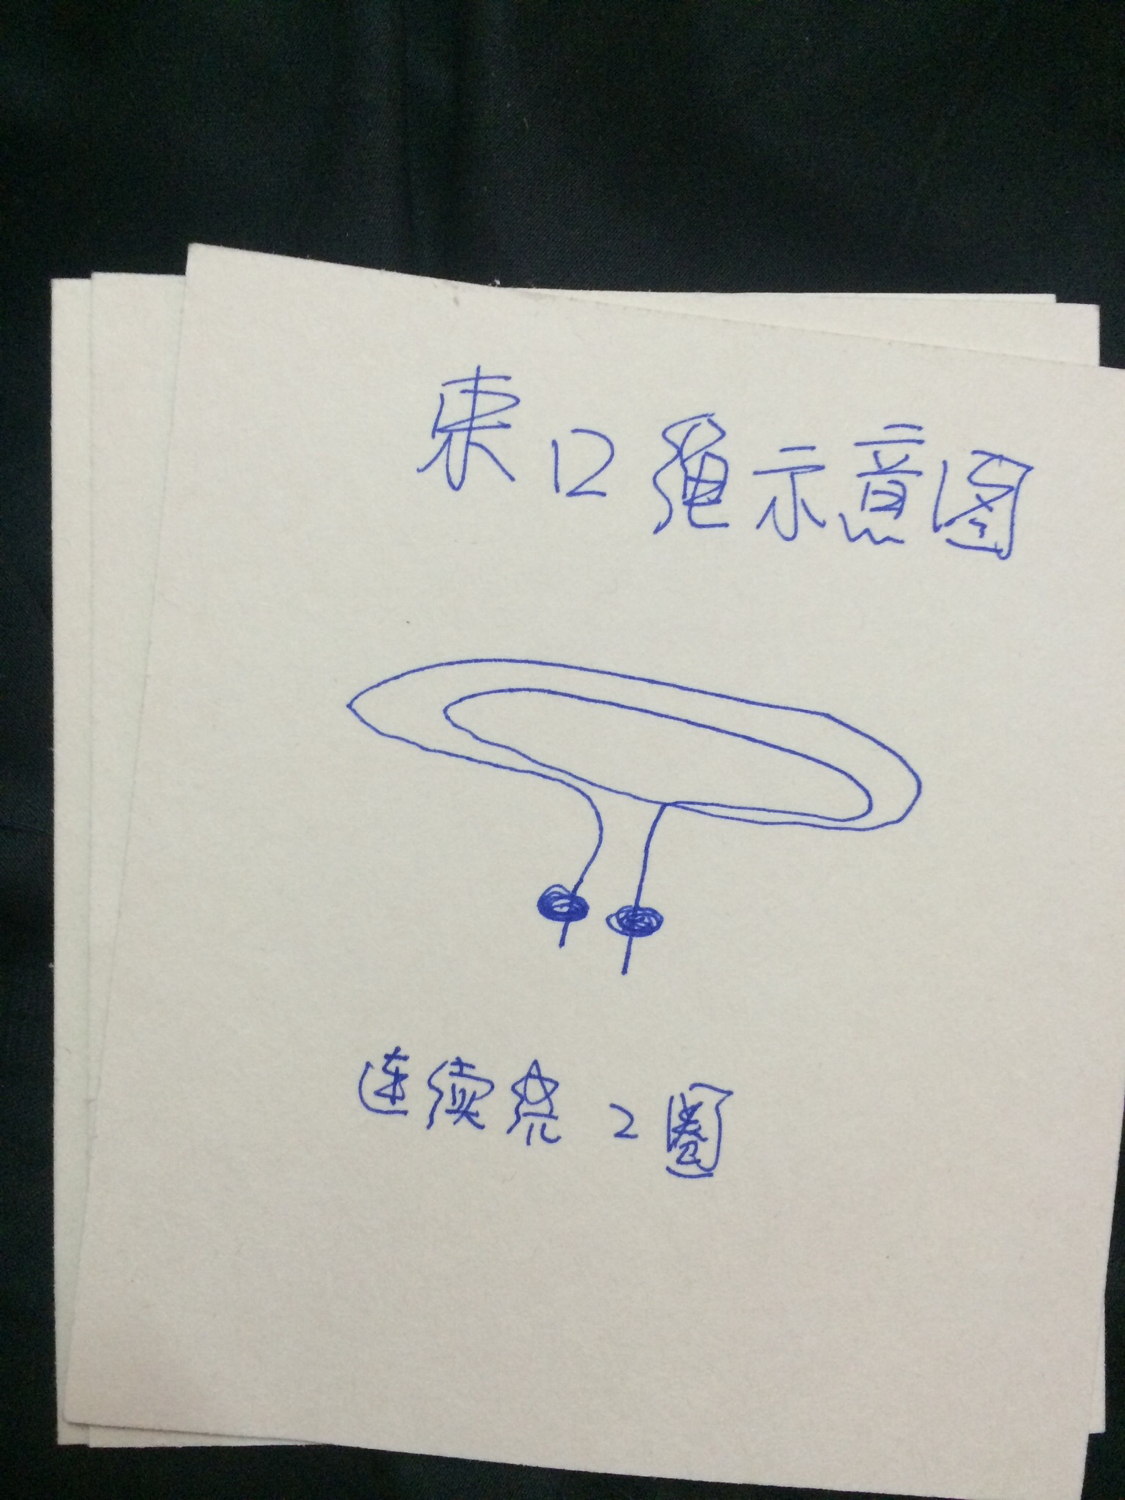 束口绳示意图
连续绕2圈